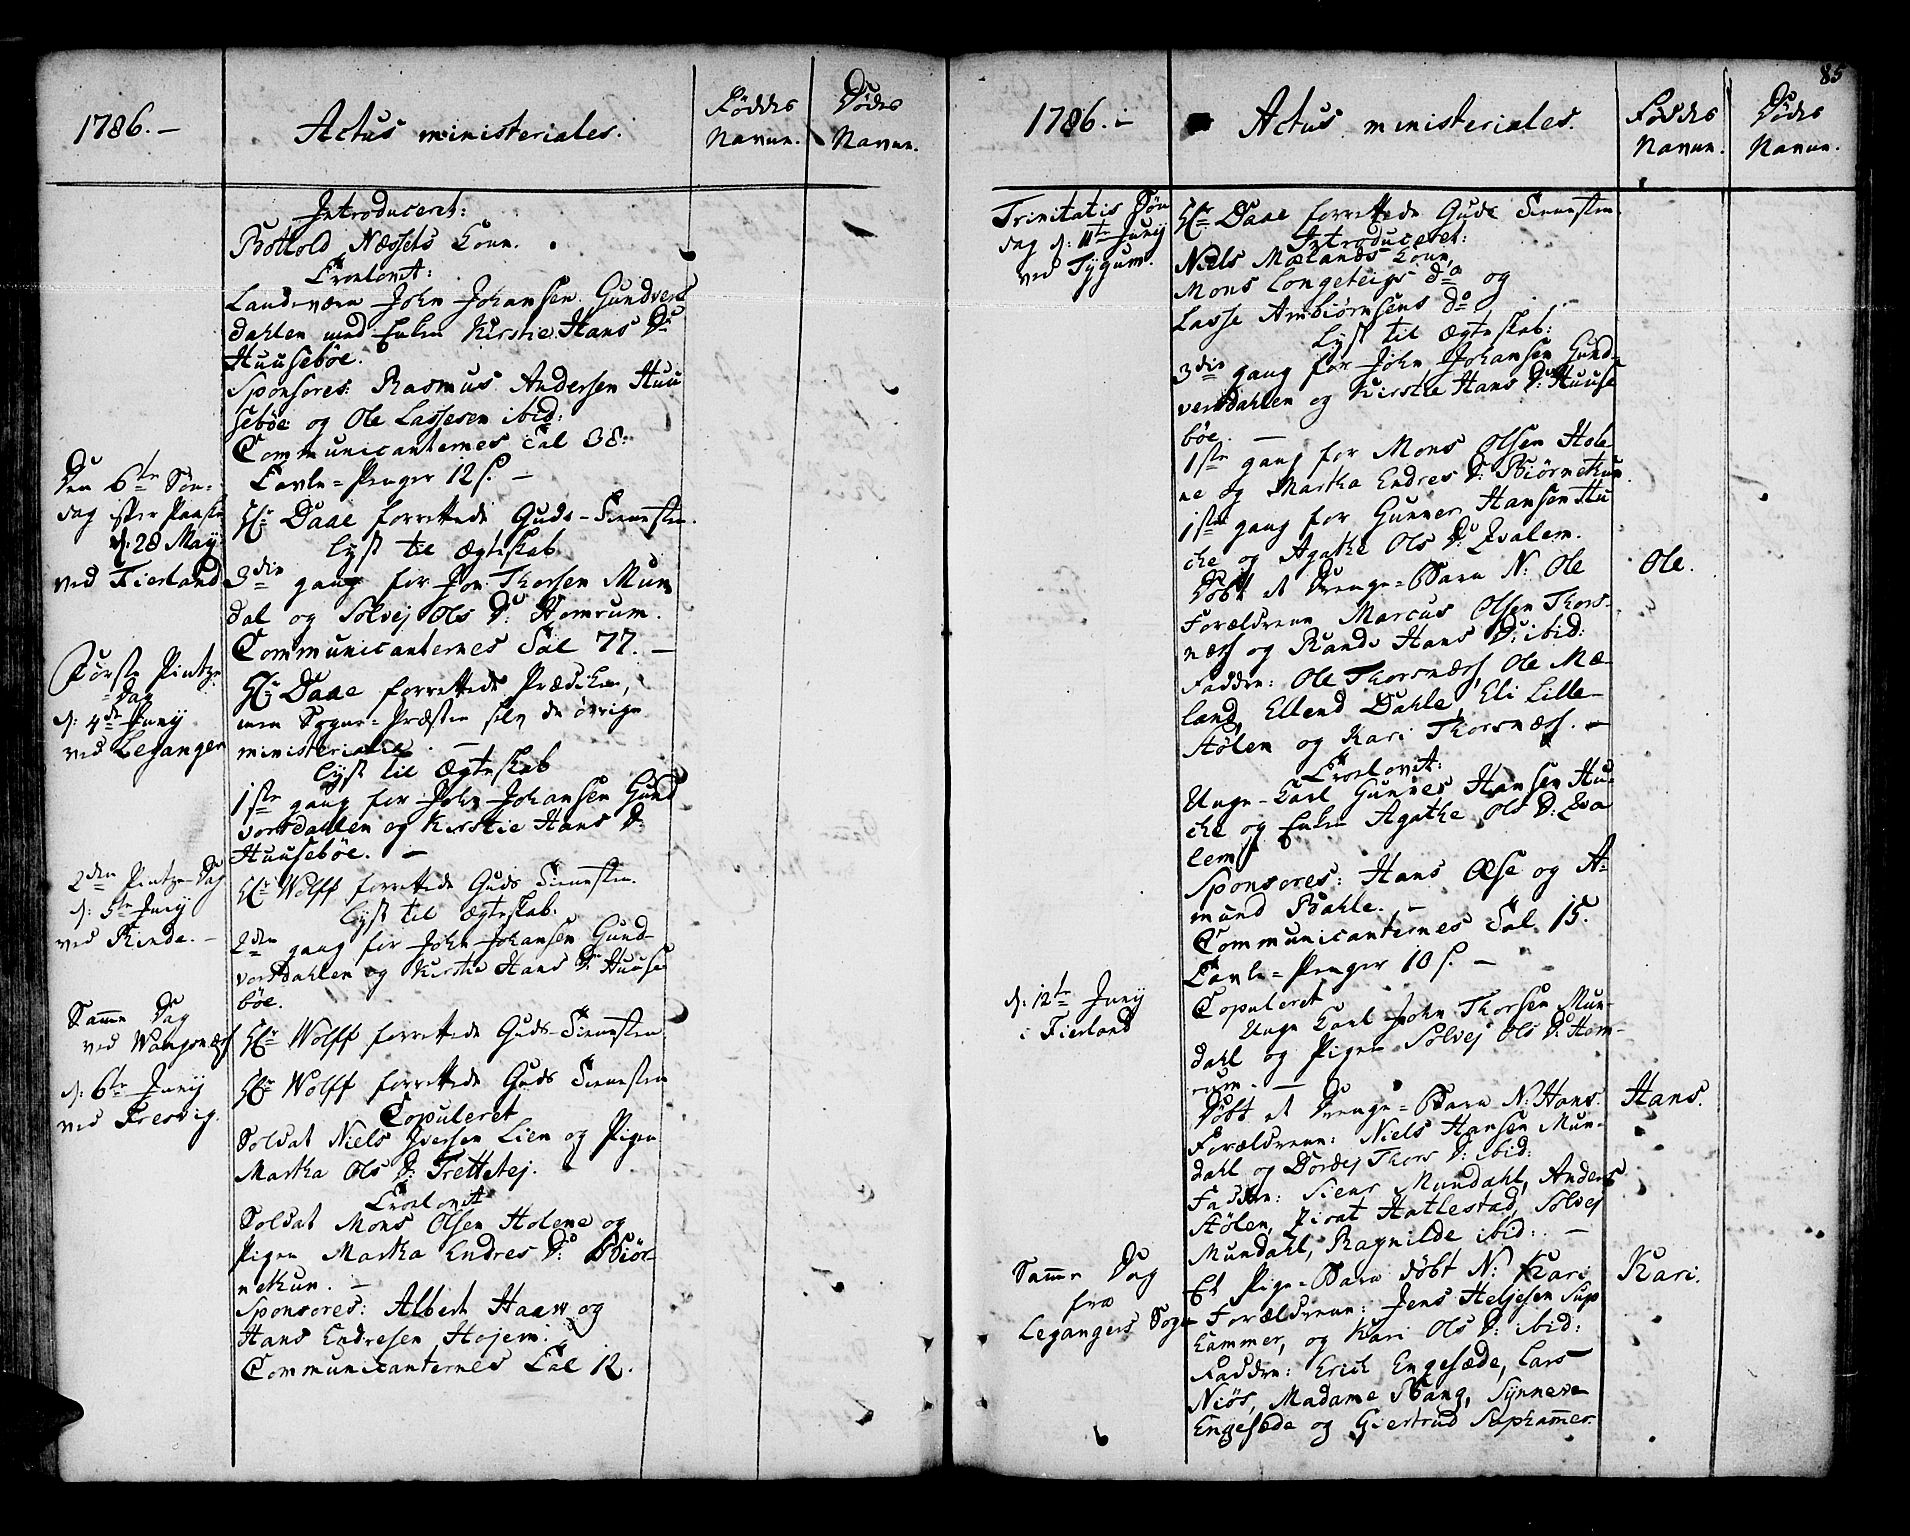 1786.—
Actus ministeriales.
Föddes
Navne.
Dödes
Navne.
Introduceret:
Bottold Næssets Kone.
Trolovet:
Landeværn John Johansen Gundvers
dahlen med Enken Kirstie Hans D:
Huusebøe.
Sponsores: Rasmus Andersen Huu
sebøe og Ole Lassesen ibid:
Communicanternes Tal 38:
Tavle-Penger 12 s. —
Den 6te Søn-
dag efter Paaske
d: 28 May
ved Fierland
Hr Daae forrettede Guds-Tienesten.
Lyst til Ægteskab
3die gang for Jon Thorsen Mun
dal og Solvej Ols D: Homrum.
Communicanternes Tal 77. —
Første Pintze
Dag
d: 4de Junij
ved Leganger
Hr Daae forrettede Prædiken,
men Sogne-Præsten selv de øvrige
ministerialia. —
Lyst til Ægteskab
1ste gang for John Johansen Gund
versdahlen og Kirstie Hans D:
Huusebøe. —
2den Pintze-Dag
d: 5te Junij
ved Rinde. —
Hr Wolff forrettede Guds Tienesten.
Lyst til Ægteskab:
2den gang for John Johansen Gund-
versdahlen og Kirstie Hans D: Huuse
bøe.
Samme Dag
ved Wangsnæs
Hr Wolff forrettede Guds-Tienesten.
d: 6te Junij
ved Fresvig.
Hr Wolff forrettede Guds Tienesten
Copuleret
Soldat Niels Iversen Lien og Pigen
Martha Ols D: Trettetej.
Trolovet
Soldat Mons Olsen Holene og
Pigen Martha Endres D: Biør
nethun. —
Sponsores: Albert Haaw og
Hans Endresen Hojem:
Communicanternes Tal 12.
85
1786.—
Actus ministeriales.
Föddes
Navne.
Dödes
Navne.
Trinitatis Søn
dag d: 11te Junij
ved Tygum.
Hr Daae forrettede Guds Tienesten
Introduceret:
Niels Mælands Kone,
Mons Longeteigs do og
Lasse Ambiørnsens do
Lyst til Ægteskab:
3die gang for John Johansen Gund-
versdahlen og Kirstie Hans D: Huuse
bøe. —
1ste gang for Mons Olsen Hole
ne og Martha Endres D: Biørnethun.
1ste gang for Gunner Hansen Hu
che og Agathe Ols D: Qvalem.
Døbt et Drenge-Barn N: Ole
Ole.
Forældrene Marcus Olsen Thors-
næs og Randi Hans D: ibid:
Faddre: Ole Thorsnæs, Ole Mæ-
land, Ellend Dahle, Eli Lille-
Stølen og Kari Thorsnæs. —
Trolovet:
Unge-Karl Gunner Hansen Hu-
che og Enken Agathe Ols D: Qva
lem.
Sponsores: Hans Æse og A-
mund Bahle. —
Communicanternes Tal 15.
Tavle-Penger 10 s. —
d: 12te Junij
i Fierland
Copuleret
Unge Karl John Thorsen Mun-
dahl og Pigen Solvej Ols D: Hom-
rum. —
Døbt et Drenge-Barn N: Hans.
Hans.
Forældrene: Niels Hansen Mun-
dahl og Dordej Thors D: ibid:
Faddre: Siens Mundahl, Anders
Stølen, Zirat Hatlestad, Solvej
Mundahl, Ragnilde ibid: —
Samme Dag
fra
Legangers Sogn
Et Pige-Barn døbt N: Kari
Kari.
Forældrene: Jens Heljesen Sup
hammer, og Kari Ols D: ibid:
Faddre: Erich Engesæde, Lars
Niøs, Madame Bang, Synneve
Engesæde og Giertrud Suphamer.